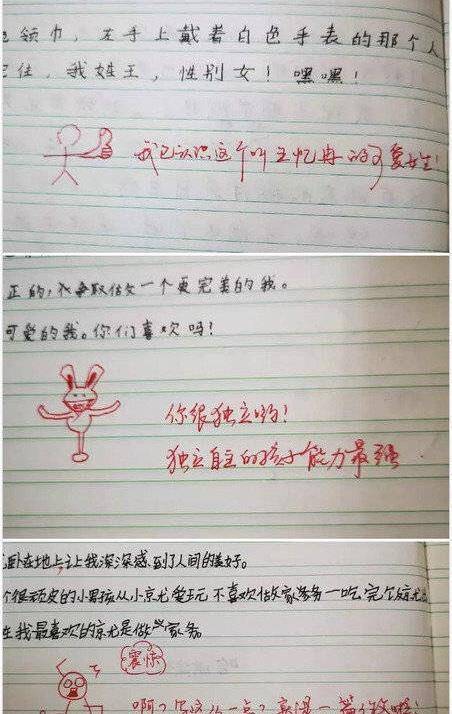 色领巾，左手上戴着白色手表的那个人
住，我姓王，性别女！嘿嘿！
我已认识这个叫王忆冉的可爱女生！
正的，我争取做一个更完美的我。
可爱的我。你们喜欢吗！
你很独立哟！
独立自主的孩子能力最强．
卧在地上让我深深感到了人间的美好。
个很顽皮的小男孩从小京尤爱玩 不喜欢做家务一吃完
我最喜欢的京尤是做 家务
震惊
啊？